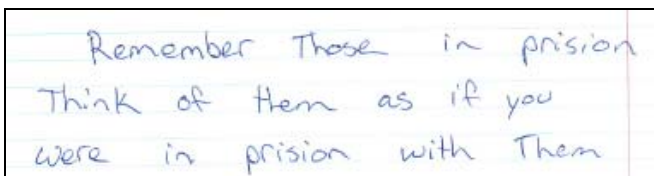 Remember Those in prision
Think of them as if you
were in prision with Them